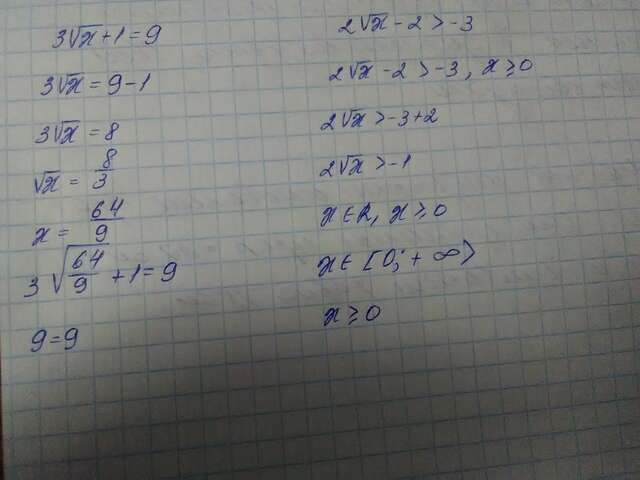 3√x + 1 = 9
3√x = 9 - 1
3√x = 8
√x = 8/3
x = 64/9
3√(64/9) + 1 = 9
9 = 9
2√x - 2 > -3
2√x - 2 > -3, x ≥ 0
2√x > -3 + 2
2√x > -1
x ∈ R, x ≥ 0
x ∈ [0; + ∞)
x ≥ 0